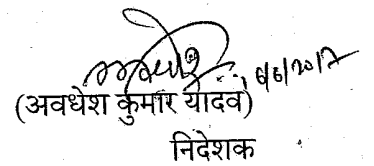 अवधेश 6/6/2017
(अवधेश कुमार यादव)
निदेशक